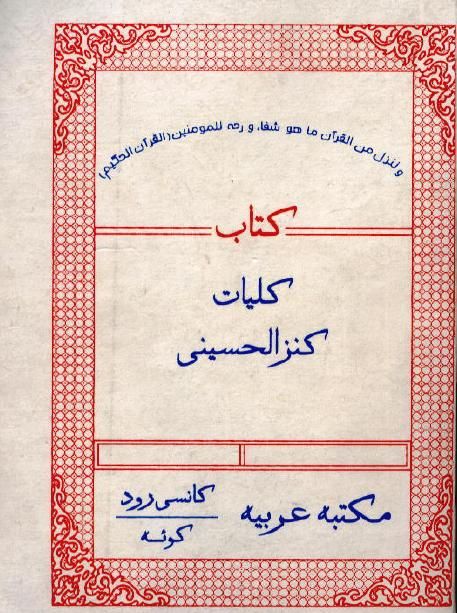 ولنزل من القرآن ما هو شفاء و رحه للمومنین (القرآن الحکیم)
کتاب
کلیات
کنز الحسینی
مکتبه عربیه
کانسی رود
کوئٹه